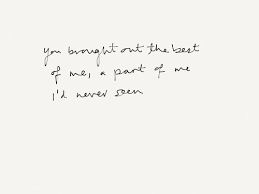 you brought out the best
of me, a part of me
I'd never seen